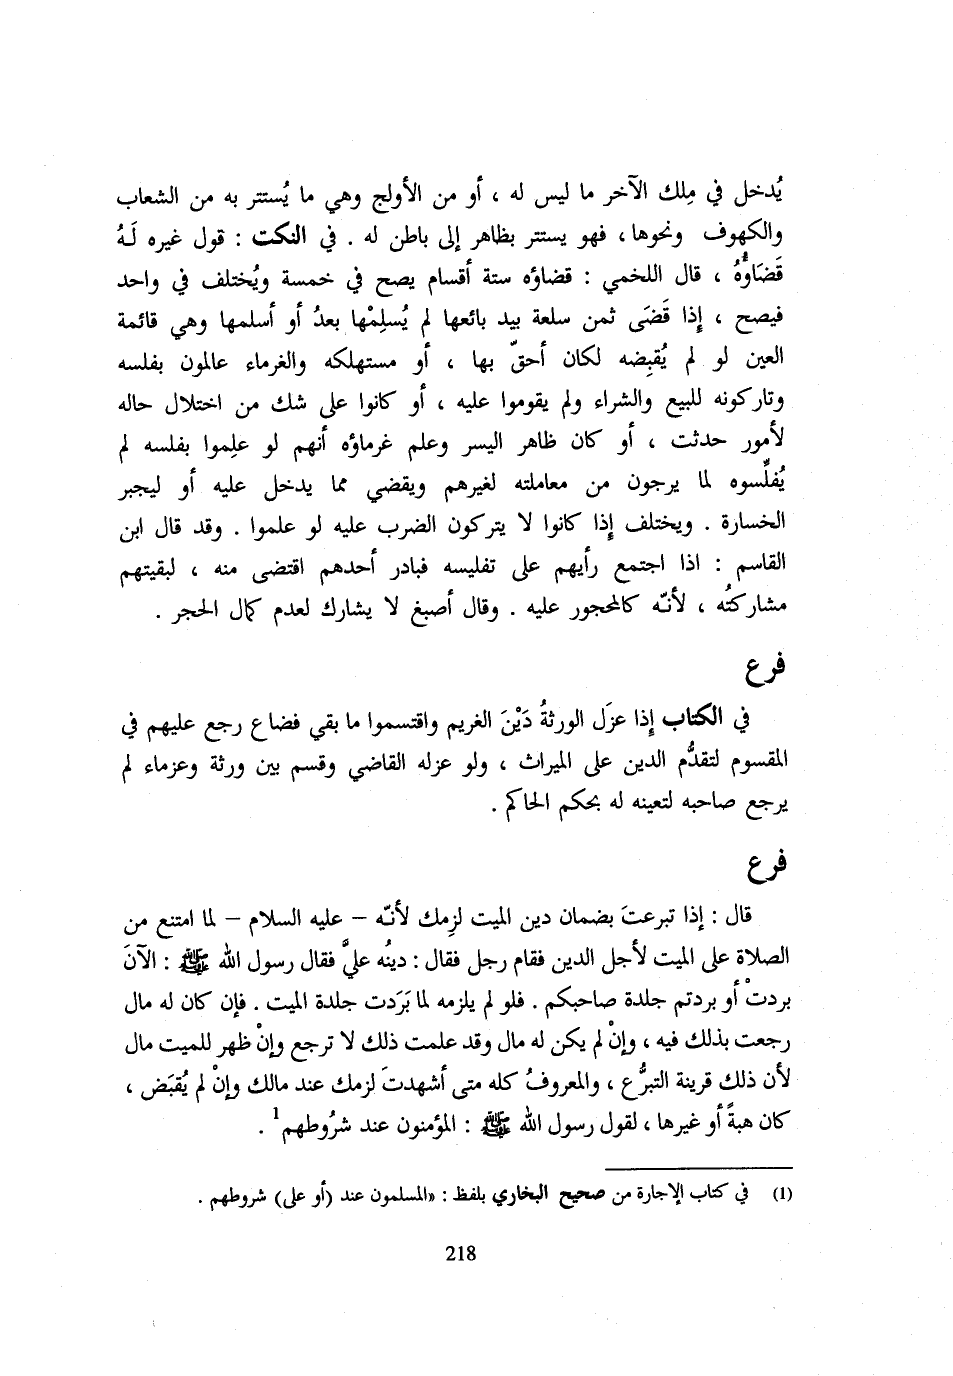 يُدخل في مِلك الآخر ما ليس له ، أو من الأولج وهي ما يُستتر به من الشعاب
والكهوف ونحوها، فهو يستتر بظاهر إلى باطن له . في النكت : قول غيره لَهُ
قَضَاؤُهُ ، قال اللخمي : قضاؤه ستة أقسام يصح في خمسة ويُختلف في واحد
فيصح ، إِذا قَضَى ثمن سلعة بيد بائعها لم يُسلِمْها بعدُ أو أسلمها وهي قائمة
العين لو لم يُقبِضه لكان أحقّ بها ، أو مستهلكه والغرماء عالمون بفلسه
وتاركونه للبيع والشراء ولم يقوموا عليه ، أو كانوا على شك من اختلال حاله
لأمور حدثت ، أو كان ظاهر اليسر وعلم غرماؤه أنهم لو علِموا بفلسه لم
يُفلِّسوه لما يرجون من معاملته لغيرهم ويقضي مما يدخل عليه أو ليجبر
الخسارة . ويختلف إِذا كانوا لا يتركون الضرب عليه لو علموا . وقد قال ابن
القاسم : اذا اجتمع رأيهم على تفليسه فبادر أحدهم اقتضى منه ، لبقيتهم
مشاركتُه ، لأنّه كالمحجور عليه . وقال أصبغ لا يشارك لعدم كمال الحجر .
فرع
في الكتاب إِذا عزَل الورثةُ دَيْنَ الغريم واقتسموا ما بقي فضاع رجع عليهم في
المقسوم لتقدُّم الدين على الميراث ، ولو عزله القاضي وقسم بين ورثة وعزماء لم
يرجع صاحبه لتعينه له بحكم الحاكم .
فرع
قال : إذا تبرعتَ بضمان دين الميت لزِمك لأنّه – عليه السلام – لما امتنع من
الصلاة على الميت لأجل الدين فقام رجل فقال : دينُه عليَّ فقال رسول الله ﷺ : الآنَ
بردتْ أو بردتم جلدة صاحبكم . فلو لم يلزمه لما بَرَدت جلدة الميت . فإن كان له مال
رجعت بذلك فيه ، وإنْ لم يكن له مال وقد علمت ذلك لا ترجع وإنْ ظهر للميت مال
لأن ذلك قرينة التبرُّع ، والمعروفُ كله متى أشهدتَ لزمك عند مالك وإنْ لم يُقبَض ،
كان هبةً أو غيرها ، لقول رسول الله ﷺ : المؤمنون عند شرُوطهم1 .
(1) في كتاب الإجارة من صحيح البخاري بلفظ : «المسلمون عند (أو على) شروطهم .
218